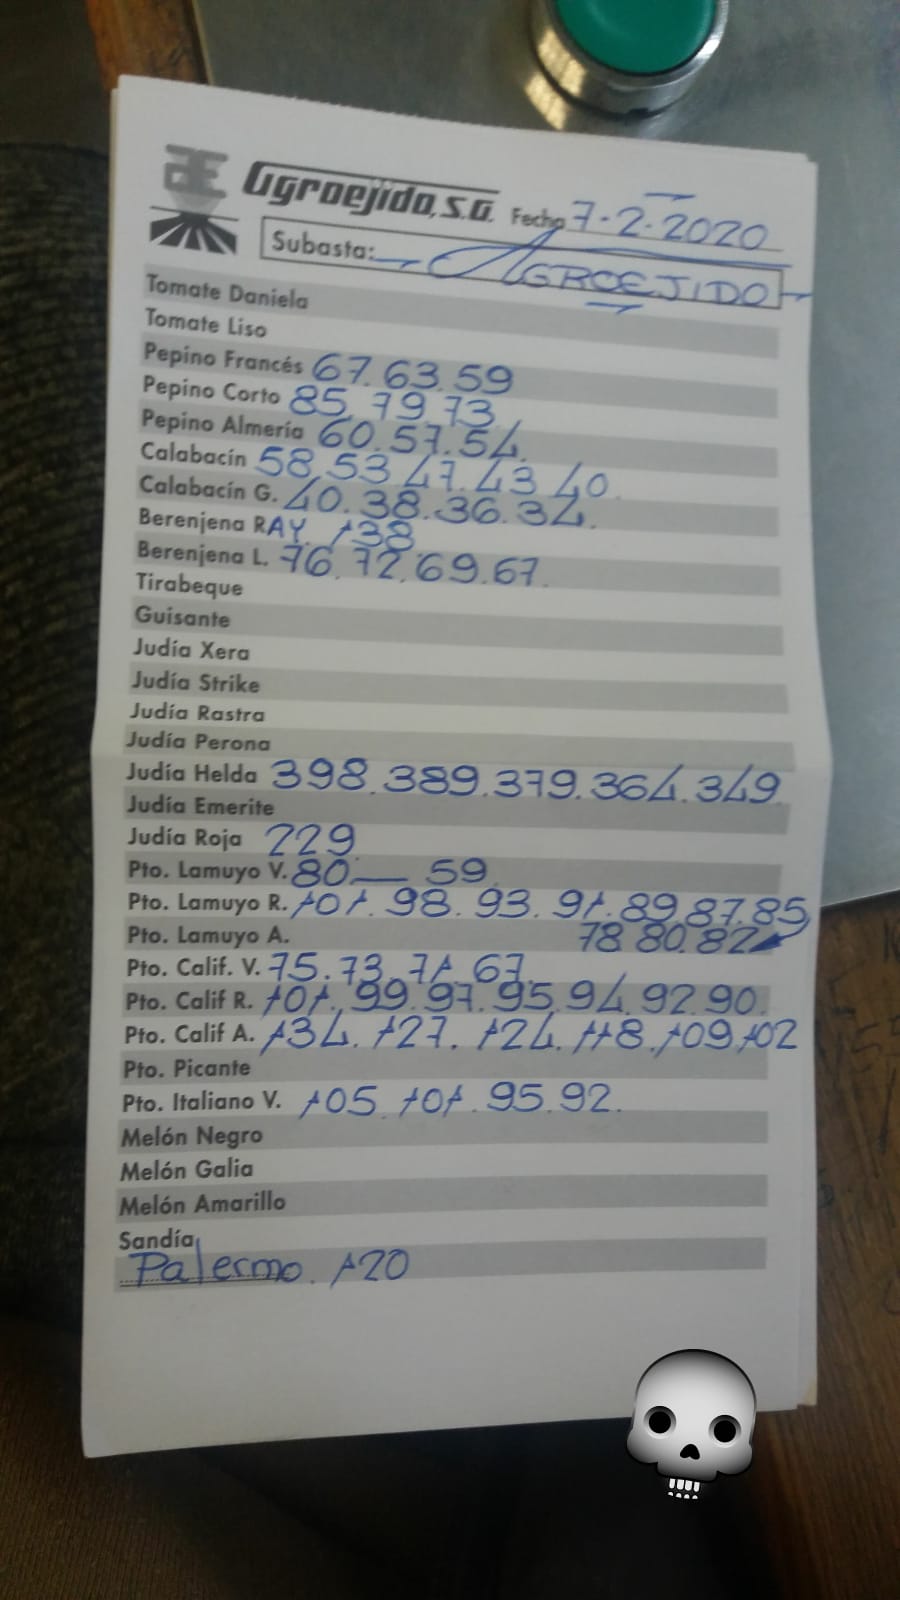 Agroejido, S.A. Fecha 7-2-2020
Subasta: AGROEJIDO
Tomate Daniela
Tomate Liso
Pepino Francés 67.63.59
Pepino Corto 85.79.73
Pepino Almería 60.57.54.
Calabacín 58.53.47.43.40.
Calabacín G. 40.38.36.34.
Berenjena RAY. 138
Berenjena L. 76.72.69.67.
Tirabeque
Guisante
Judía Xera
Judía Strike
Judía Rastra
Judía Perona
Judía Helda 398.389.379.364.349
Judía Emerite
Judía Roja 229
Pto. Lamuyo V. 80 — 59
Pto. Lamuyo R. 101.98.93.91.89.87.85
Pto. Lamuyo A. 78 80.82
Pto. Calif. V. 75.73.71.67.
Pto. Calif R. 101.99.97.95.94.92.90.
Pto. Calif A. 134.127.124.118.109.102
Pto. Picante
Pto. Italiano V. 105.101.95.92.
Melón Negro
Melón Galia
Melón Amarillo
Sandía
Palermo. 120